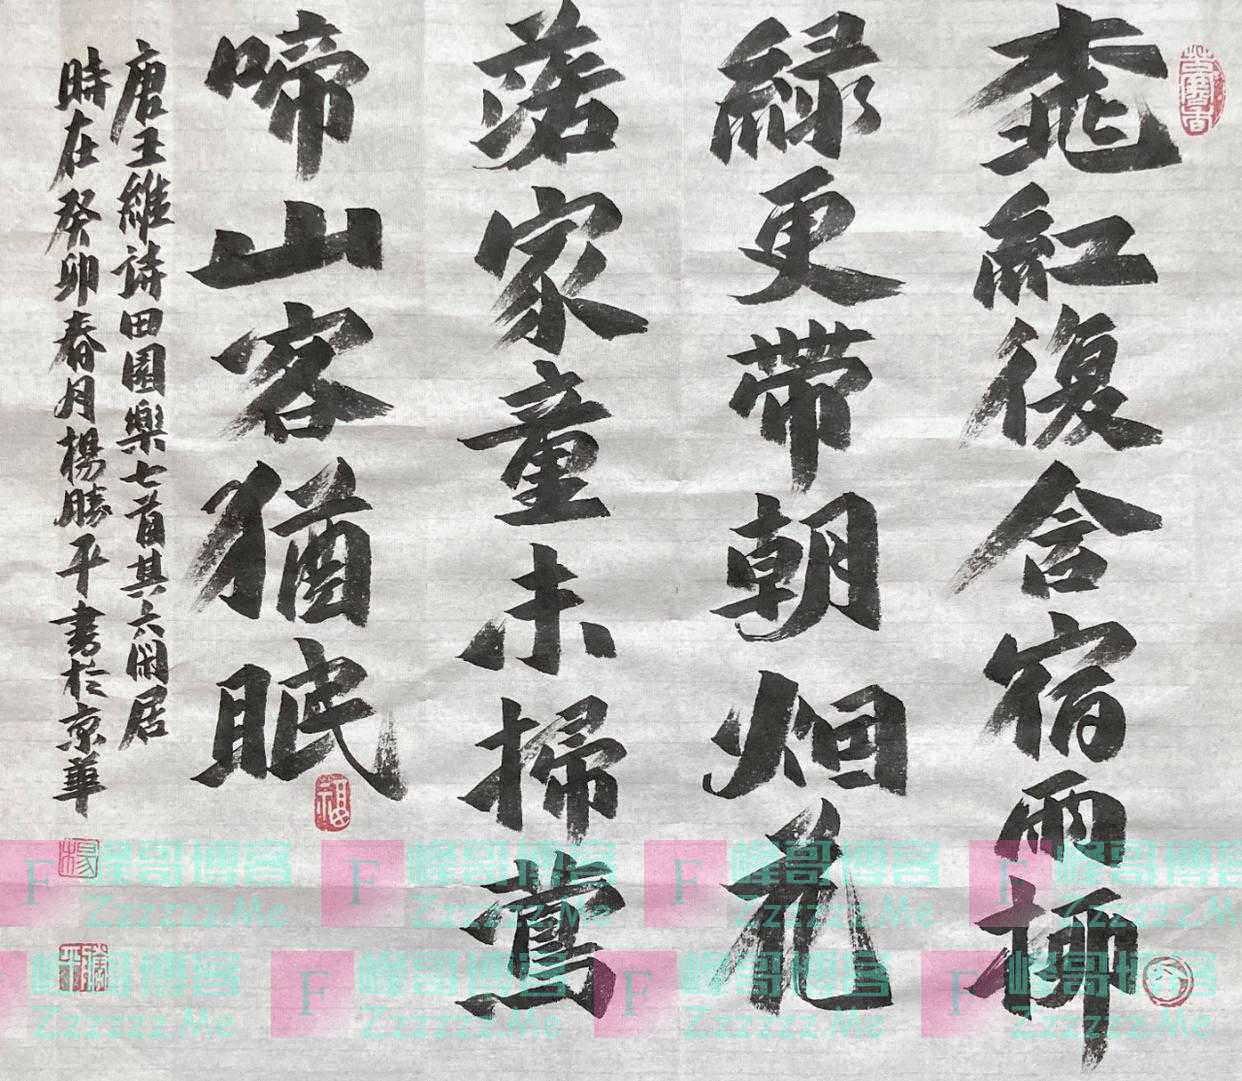 桃紅復含宿雨柳
緑更带朝烟花
落家童未掃鶯
啼山客猶眠
唐王維詩田園樂七首其六閑居
時在癸卯春月楊勝平書於京華
福
楊
勝平
F 峰哥博客 F 峰哥博客 F 峰哥博客 F 峰哥博客
Zzzzzz.Me Zzzzzz.Me Zzzzzz.Me Zzzzzz.Me
峰哥博客 F 峰哥博客 F 峰哥博客 F 峰哥博客
Zzzzzz.Me Zzzzzz.Me Zzzzzz.Me Zzzzzz.Me